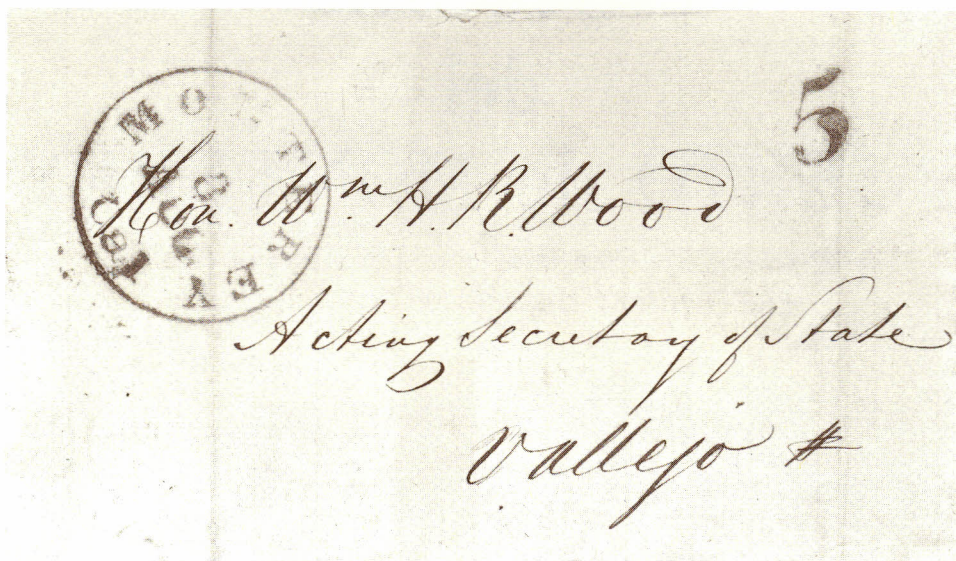 MONTEREY
5
Hon. Wm H. R. Wood
Acting Secretary of State
Vallejo #